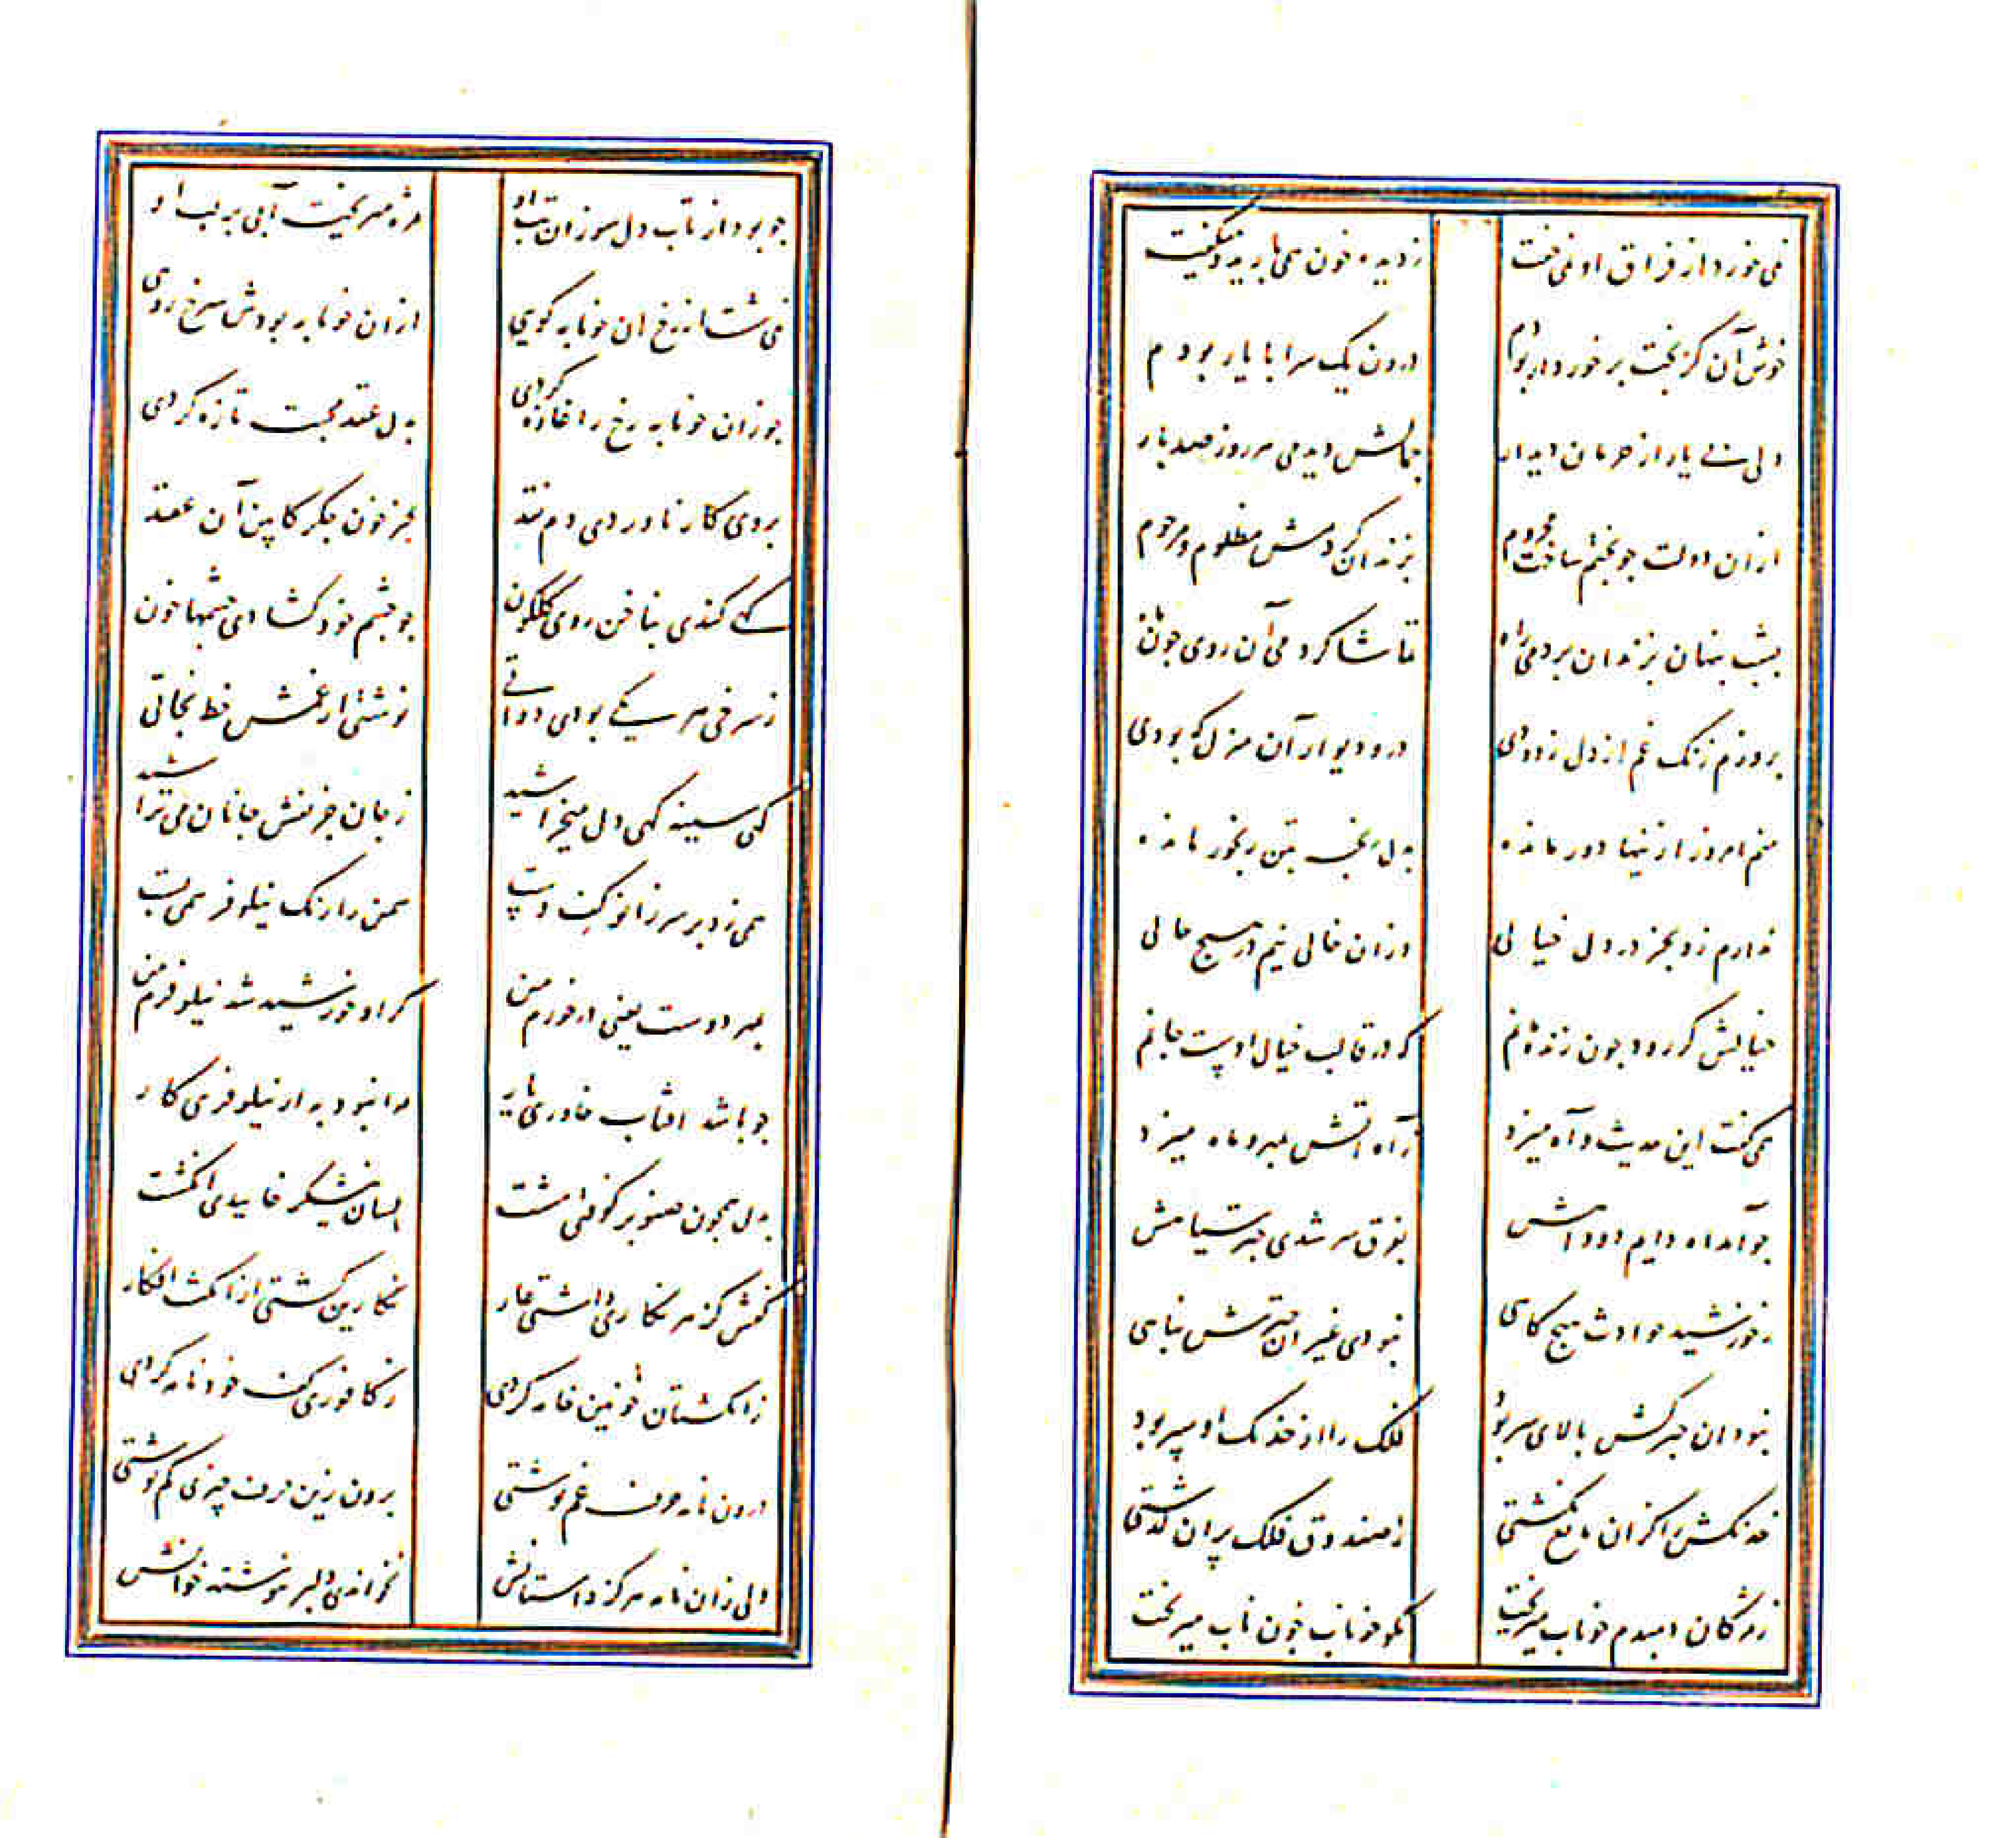 نمی خورد از فراق او نمی خفت
ز دیده خون همی بارید و میکفت
خوش آن کز بخت برخوردار بودم
درون یک سرا با یار بودم
دلی بی یار از حرمان دیدار
جمالش دیدمی هر روز صد بار
ازان دولت چو بختم ساخت محروم
بزندان کردمش مظلوم و مرحوم
بشب پنهان بزندان بردمی راه
تماشا کردمی آن روی چون ماه
بروزم زنک غم از دل زدودی
در و دیوار آن منزل که بودی
منم امروز ازینها دور مانده
بدل رنجه بتن رنجور مانده
ندارم زو بجز در دل خیالی
وزان خالی نیم در هیچ حالی
خیالش کر رود چون زنده مانم
که در قالب خیال اوست جانم
همی کفت این حدیث و آه میزد
ز آه آتش بمهر و ماه میزد
چو آمد آه دایم دود آهش
بفرق سر شدی چتر سیاهش
ز خورشید حوادث هیچ کاهی
نبودی غیر آن چترش پناهی
نبود آن چترکش بالای سر بود
فلک را از خدنک او سپر بود
خدنکش را کر آن مانع نکشتی
ز صندوق فلک پران کذشتی
ز مژکان دمبدم خوناب میریخت
مکو خوناب خون ناب میریخت
چو بود از تاب دل سوزان تب او
مژه میریخت آبی بر لب او
نمی شست از رخ آن خونابه کویی
ازان خونابه بودش سرخ رویی
چو زان خونابه رخ را غازه کردی
بدل عقد محبت تازه کردی
بروی کار ناوردی دم نقد
بجز خون جکر کابین آن عقد
کهی کندی بناخن روی کلکون
چو چشم خود کشادی چشمها خون
ز سرخی هر یکی بودی دواتی
نوشتی از غمش خط نجاتی
کهی سینه کهی دل میخراشید
ز جان جز نقش جانان می تراشید
همی زد بر سر زانو کف دست
سمن را رنک نیلوفر همی بست
بمهر دوست یعنی در خورم من
کر او خورشید شد نیلوفرم من
چو باشد آفتاب خاوری یار
مرا نبود به از نیلوفری کار
بدل همچون صنوبر کوفتی مشت
بسان نیشکر خاییدی انکشت
کفش کز هر نکاری داشتی عار
نکارین کشتی از انکشت افکار
ز انکشتان خونین خامه کردی
ز کافوری کف خود نامه کردی
درون نامه حرف غم نوشتی
برون زین حرف چیزی کم نوشتی
ولی زان نامه هرکز داستانش
نخواندی دلبر نوشته خوانش